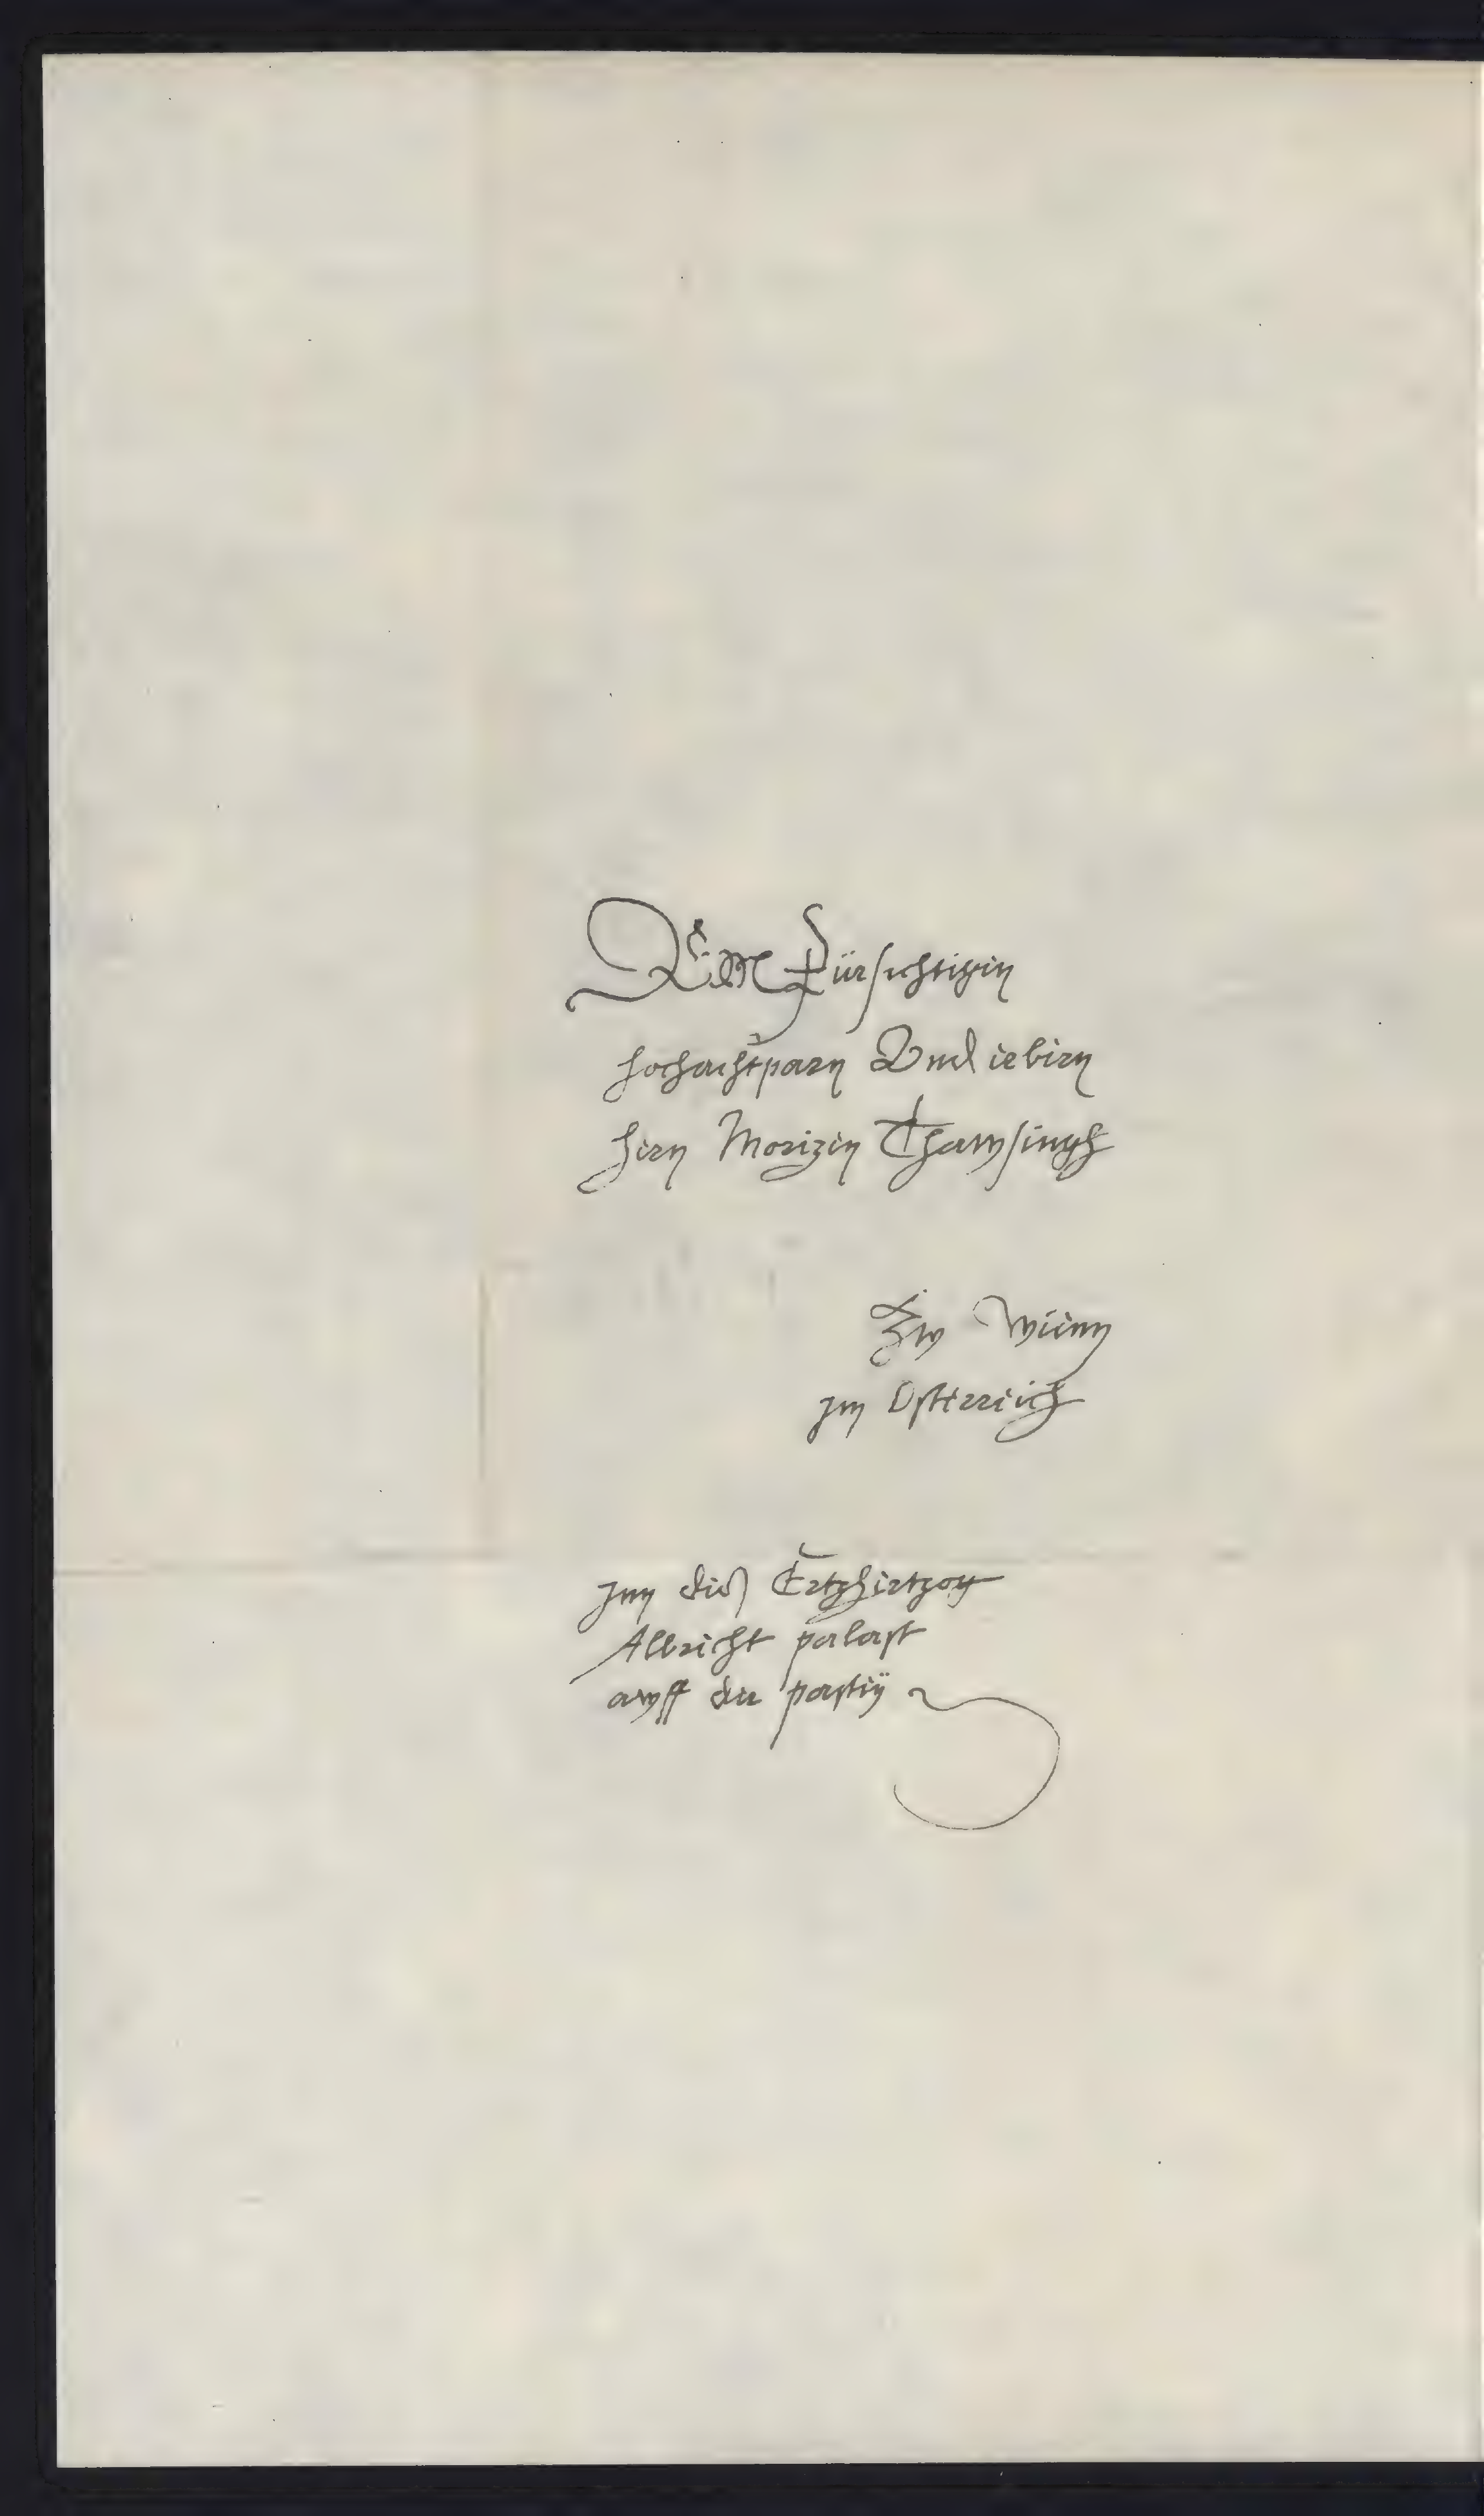 DEM Fürsichtigen
hochachtparn Vnd lebern
Hern Morizen Thawsingh
Zw Wienn
Jn Osterreich
Jnn des Ertzhertzog
Albricht palast
awff der pastey